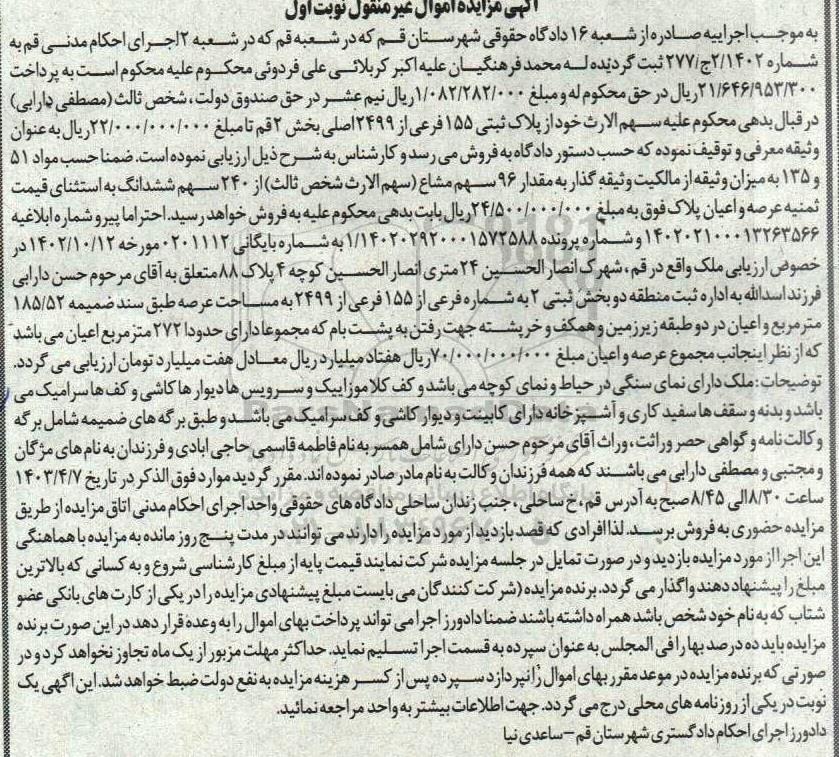 آگهی مزایده اموال غیرمنقول نوبت اول
به موجب اجراییه صادره از شعبه ۱۶ دادگاه حقوقی شهرستان قم که در شعبه قم که در شعبه ۲ اجرای احکام مدنی قم به
شماره ۲/۱۴۰۲ج/۲۷۷ ثبت گردیده له محمد فرهنگیان علیه اکبر کربلائی علی فردوئی محکوم علیه محکوم است به پرداخت
۲۱/۶۴۶/۹۵۳/۳۰۰ریال در حق محکوم له و مبلغ ۱/۰۸۲/۲۸۲/۰۰۰ریال نیم عشر در حق صندوق دولت، شخص ثالث (مصطفی دارابی)
در قبال بدهی محکوم علیه سهم الارث خود از پلاک ثبتی ۱۵۵ فرعی از ۲۴۹۹اصلی بخش ۲قم تا مبلغ ۲۲/۰۰۰/۰۰۰/۰۰۰ریال به عنوان
وثیقه معرفی و توقیف نموده که حسب دستور دادگاه به فروش می رسد و کارشناس به شرح ذیل ارزیابی نموده است. ضمنا حسب مواد ۵۱
و ۱۳۵ به میزان وثیقه از مالکیت وثیقه گذار به مقدار ۹۶ سهم مشاع (سهم الارث شخص ثالث) از ۲۴۰ سهم ششدانگ به استثنای قیمت
ثمنیه عرصه و اعیان پلاک فوق به مبلغ ۲۴/۵۰۰/۰۰۰/۰۰۰ریال بابت بدهی محکوم علیه به فروش خواهد رسید. احتراما پیرو شماره ابلاغیه
۱۴۰۲۰۲۱۰۰۰۱۳۲۶۳۵۶۶ و شماره پرونده ۱/۱۴۰۲۰۲۹۲۰۰۰۱۵۷۲۵۸۸ به شماره بایگانی ۰۲۰۱۱۱۲ مورخه ۱۴۰۲/۱۰/۱۲ در
خصوص ارزیابی ملک واقع در قم، شهرک انصار الحسین ۲۴ متری انصار الحسین کوچه ۴ پلاک ۸۸ متعلق به آقای مرحوم حسن دارابی
فرزند اسدالله به اداره ثبت منطقه دو بخش ثبتی ۲ به شماره فرعی از ۱۵۵ فرعی از ۲۴۹۹ به مساحت عرصه طبق سند ضمیمه ۱۸۵/۵۲
مترمربع و اعیان در دو طبقه زیرزمین و همکف و خرپشته جهت رفتن به پشت بام که مجموعا دارای حدودا ۲۷۲ مترمربع اعیان می باشد
که از نظر اینجانب مجموع عرصه و اعیان مبلغ ۷۰/۰۰۰/۰۰۰/۰۰۰ریال هفتاد میلیارد ریال معادل هفت میلیارد تومان ارزیابی می گردد.
توضیحات: ملک دارای نمای سنگی در حیاط و نمای کوچه می باشد و کف کلا موزاییک و سرویس ها دیوار ها کاشی و کف ها سرامیک می
باشد و بدنه و سقف ها سفید کاری و آشپزخانه دارای کابینت و دیوار کاشی و کف سرامیک می باشد و طبق برگه های ضمیمه شامل برگه
وکالت نامه و گواهی حصر وراثت، وراث آقای مرحوم حسن دارای شامل همسر به نام فاطمه قاسمی حاجی ابادی و فرزندان به نام های مژگان
و مجتبی و مصطفی دارابی می باشند که همه فرزندان وکالت به نام مادر صادر نموده اند. مقرر گردید موارد فوق الذکر در تاریخ ۱۴۰۳/۴/۷
ساعت ۸/۳۰الی ۸/۴۵ صبح به آدرس قم، خ ساحلی، جنب زندان ساحلی دادگاه های حقوقی واحد اجرای احکام مدنی اتاق مزایده از طریق
مزایده حضوری به فروش برسد. لذا افرادی که قصد بازدید از مورد مزایده را دارند می توانند در مدت پنج روز مانده به مزایده با هماهنگی
این اجرا از مورد مزایده بازدید و در صورت تمایل در جلسه مزایده شرکت نمایند قیمت پایه از مبلغ کارشناسی شروع و به کسانی که بالاترین
مبلغ را پیشنهاد دهند واگذار می گردد. برنده مزایده (شرکت کنندگان می بایست مبلغ پیشنهادی مزایده را در یکی از کارت های بانکی عضو
شتاب که به نام خود شخص باشد همراه داشته باشند ضمنا دادورز اجرا می تواند پرداخت بهای اموال را به وعده قرار دهد در این صورت برنده
مزایده باید ده درصد بها را فی المجلس به عنوان سپرده به قسمت اجرا تسلیم نماید. حداکثر مهلت مزبور از یک ماه تجاوز نخواهد کرد و در
صورتی که برنده مزایده در موعد مقرر بهای اموال را نپردازد سپرده پس از کسر هزینه مزایده به نفع دولت ضبط خواهد شد. این اگهی یک
نوبت در یکی از روزنامه های محلی درج می گردد. جهت اطلاعات بیشتر به واحد مراجعه نمائید.
دادورز اجرای احکام دادگستری شهرستان قم – ساعدی نیا